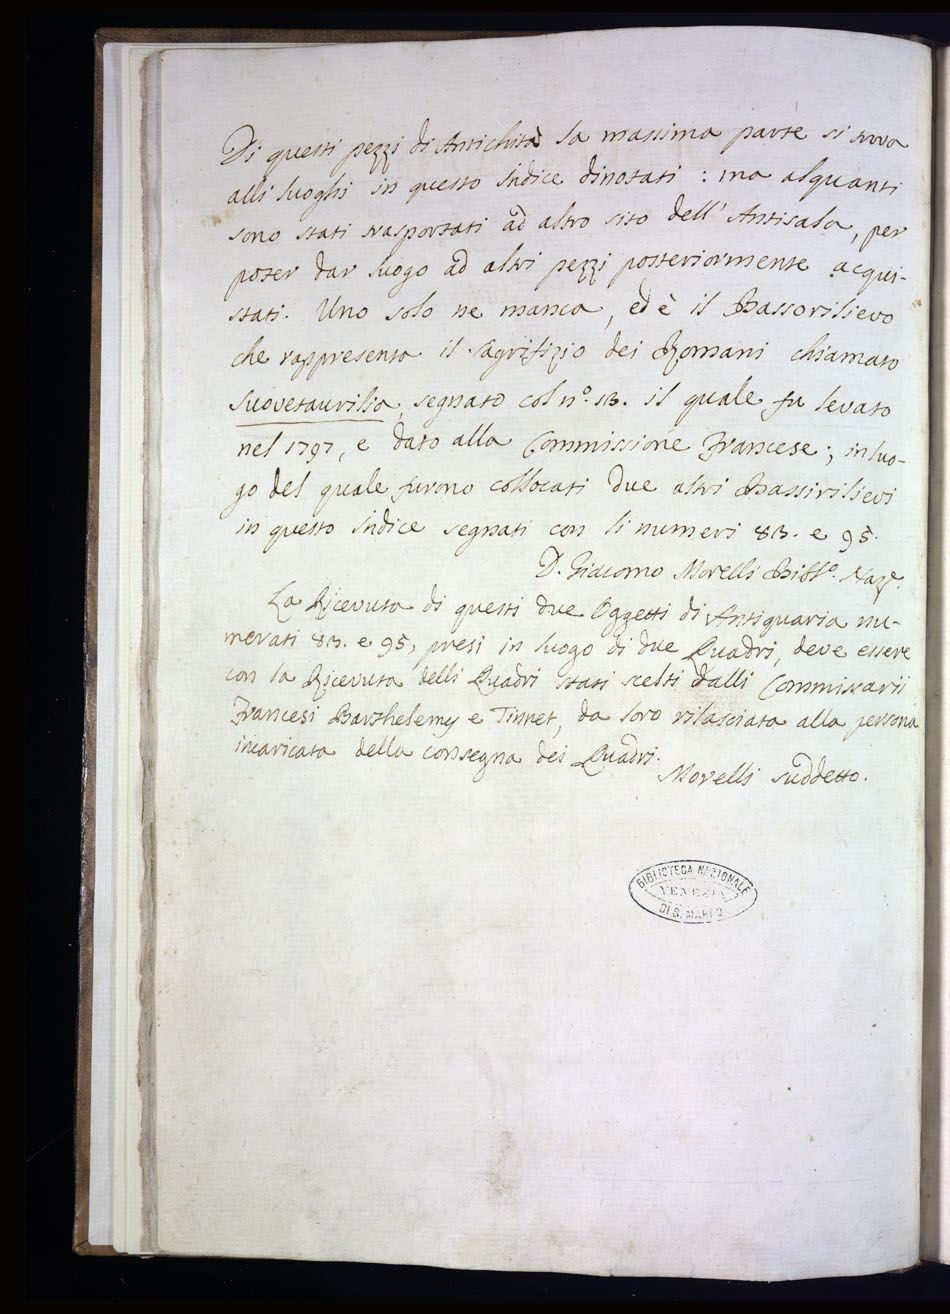 Di questi pezzi di Antichità la massima parte si trova
alli luoghi in questo Indice dinotati : ma alquanti
sono stati trasportati ad altro sito dell' Antisala, per
poter dar luogo ad altri pezzi posteriormente acqui-
stati. Uno solo ne manca, ed è il Bassorilievo
che rappresenta il Sagrifizio dei Romani chiamato
Suovetaurilia, segnato col nº. 13. il quale fu levato
nel 1797, e dato alla Commissione Francese; in luo-
go del quale furono collocati due altri Bassirilievi
in questo Indice segnati con li numeri 83. e 95.
D. Giacomo Morelli Bibl.º Naz.e
La Ricevuta di questi due Oggetti di Antiquaria nu-
merati 83. e 95, presi in luogo di due Quadri, deve essere
con la Ricevuta delli Quadri stati scelti dalli Commissarii
Francesi Barthelemy e Tinnet, da loro rilasciata alla persona
incaricata della consegna dei Quadri.
Morelli suddetto.
BIBLIOTECA NAZIONALE
VENEZIA
DI S. MARCO